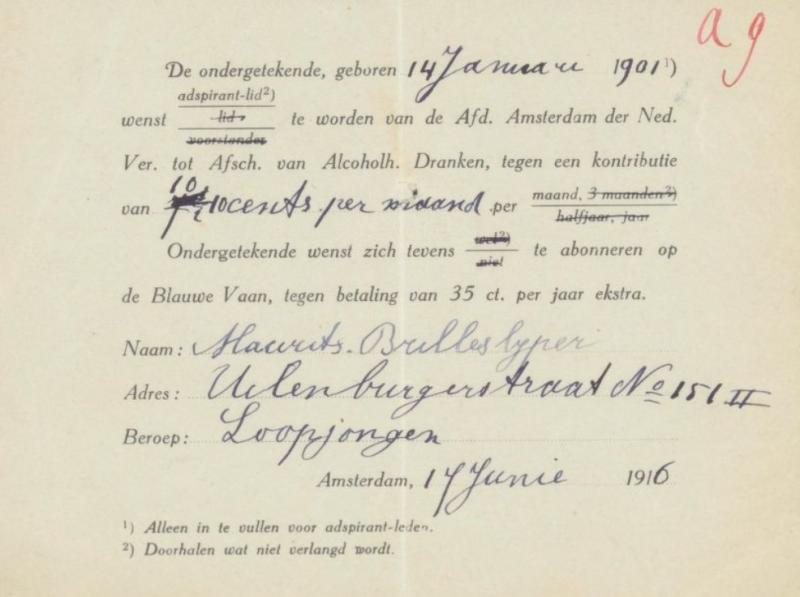 a g
De ondergetekende, geboren 14 Januari 1901 ¹)
adspirant-lid²)
wenst lid, te worden van de Afd. Amsterdam der Ned.
voorstander
Ver. tot Afsch. van Alcoholh. Dranken, tegen een kontributie
10
van 10 cents per maand per maand, 3 maanden²)
halfjaar, jaar
wel²)
Ondergetekende wenst zich tevens te abonneren op
niet
de Blauwe Vaan, tegen betaling van 35 ct. per jaar ekstra.
Naam: Maurits. Brilleslyper
Adres: Uilenburgerstraat No 151 II
Beroep: Loopjongen
Amsterdam, 17 Junie 1916
¹) Alleen in te vullen voor adspirant-leden.
²) Doorhalen wat niet verlangd wordt.